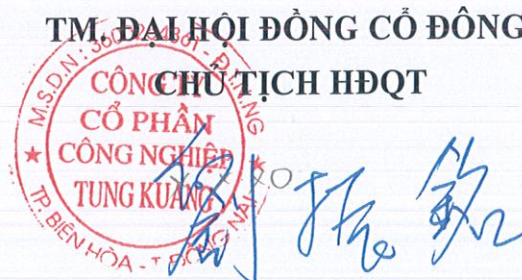 TM. ĐẠI HỘI ĐỒNG CỔ ĐÔNG
CHỦ TỊCH HĐQT
CÔNG TY
CỔ PHẦN
CÔNG NGHIỆP
TUNG KUANG
TP. BIÊN HÒA - T. ĐỒNG NAI
M.S.D.N
劉振銘